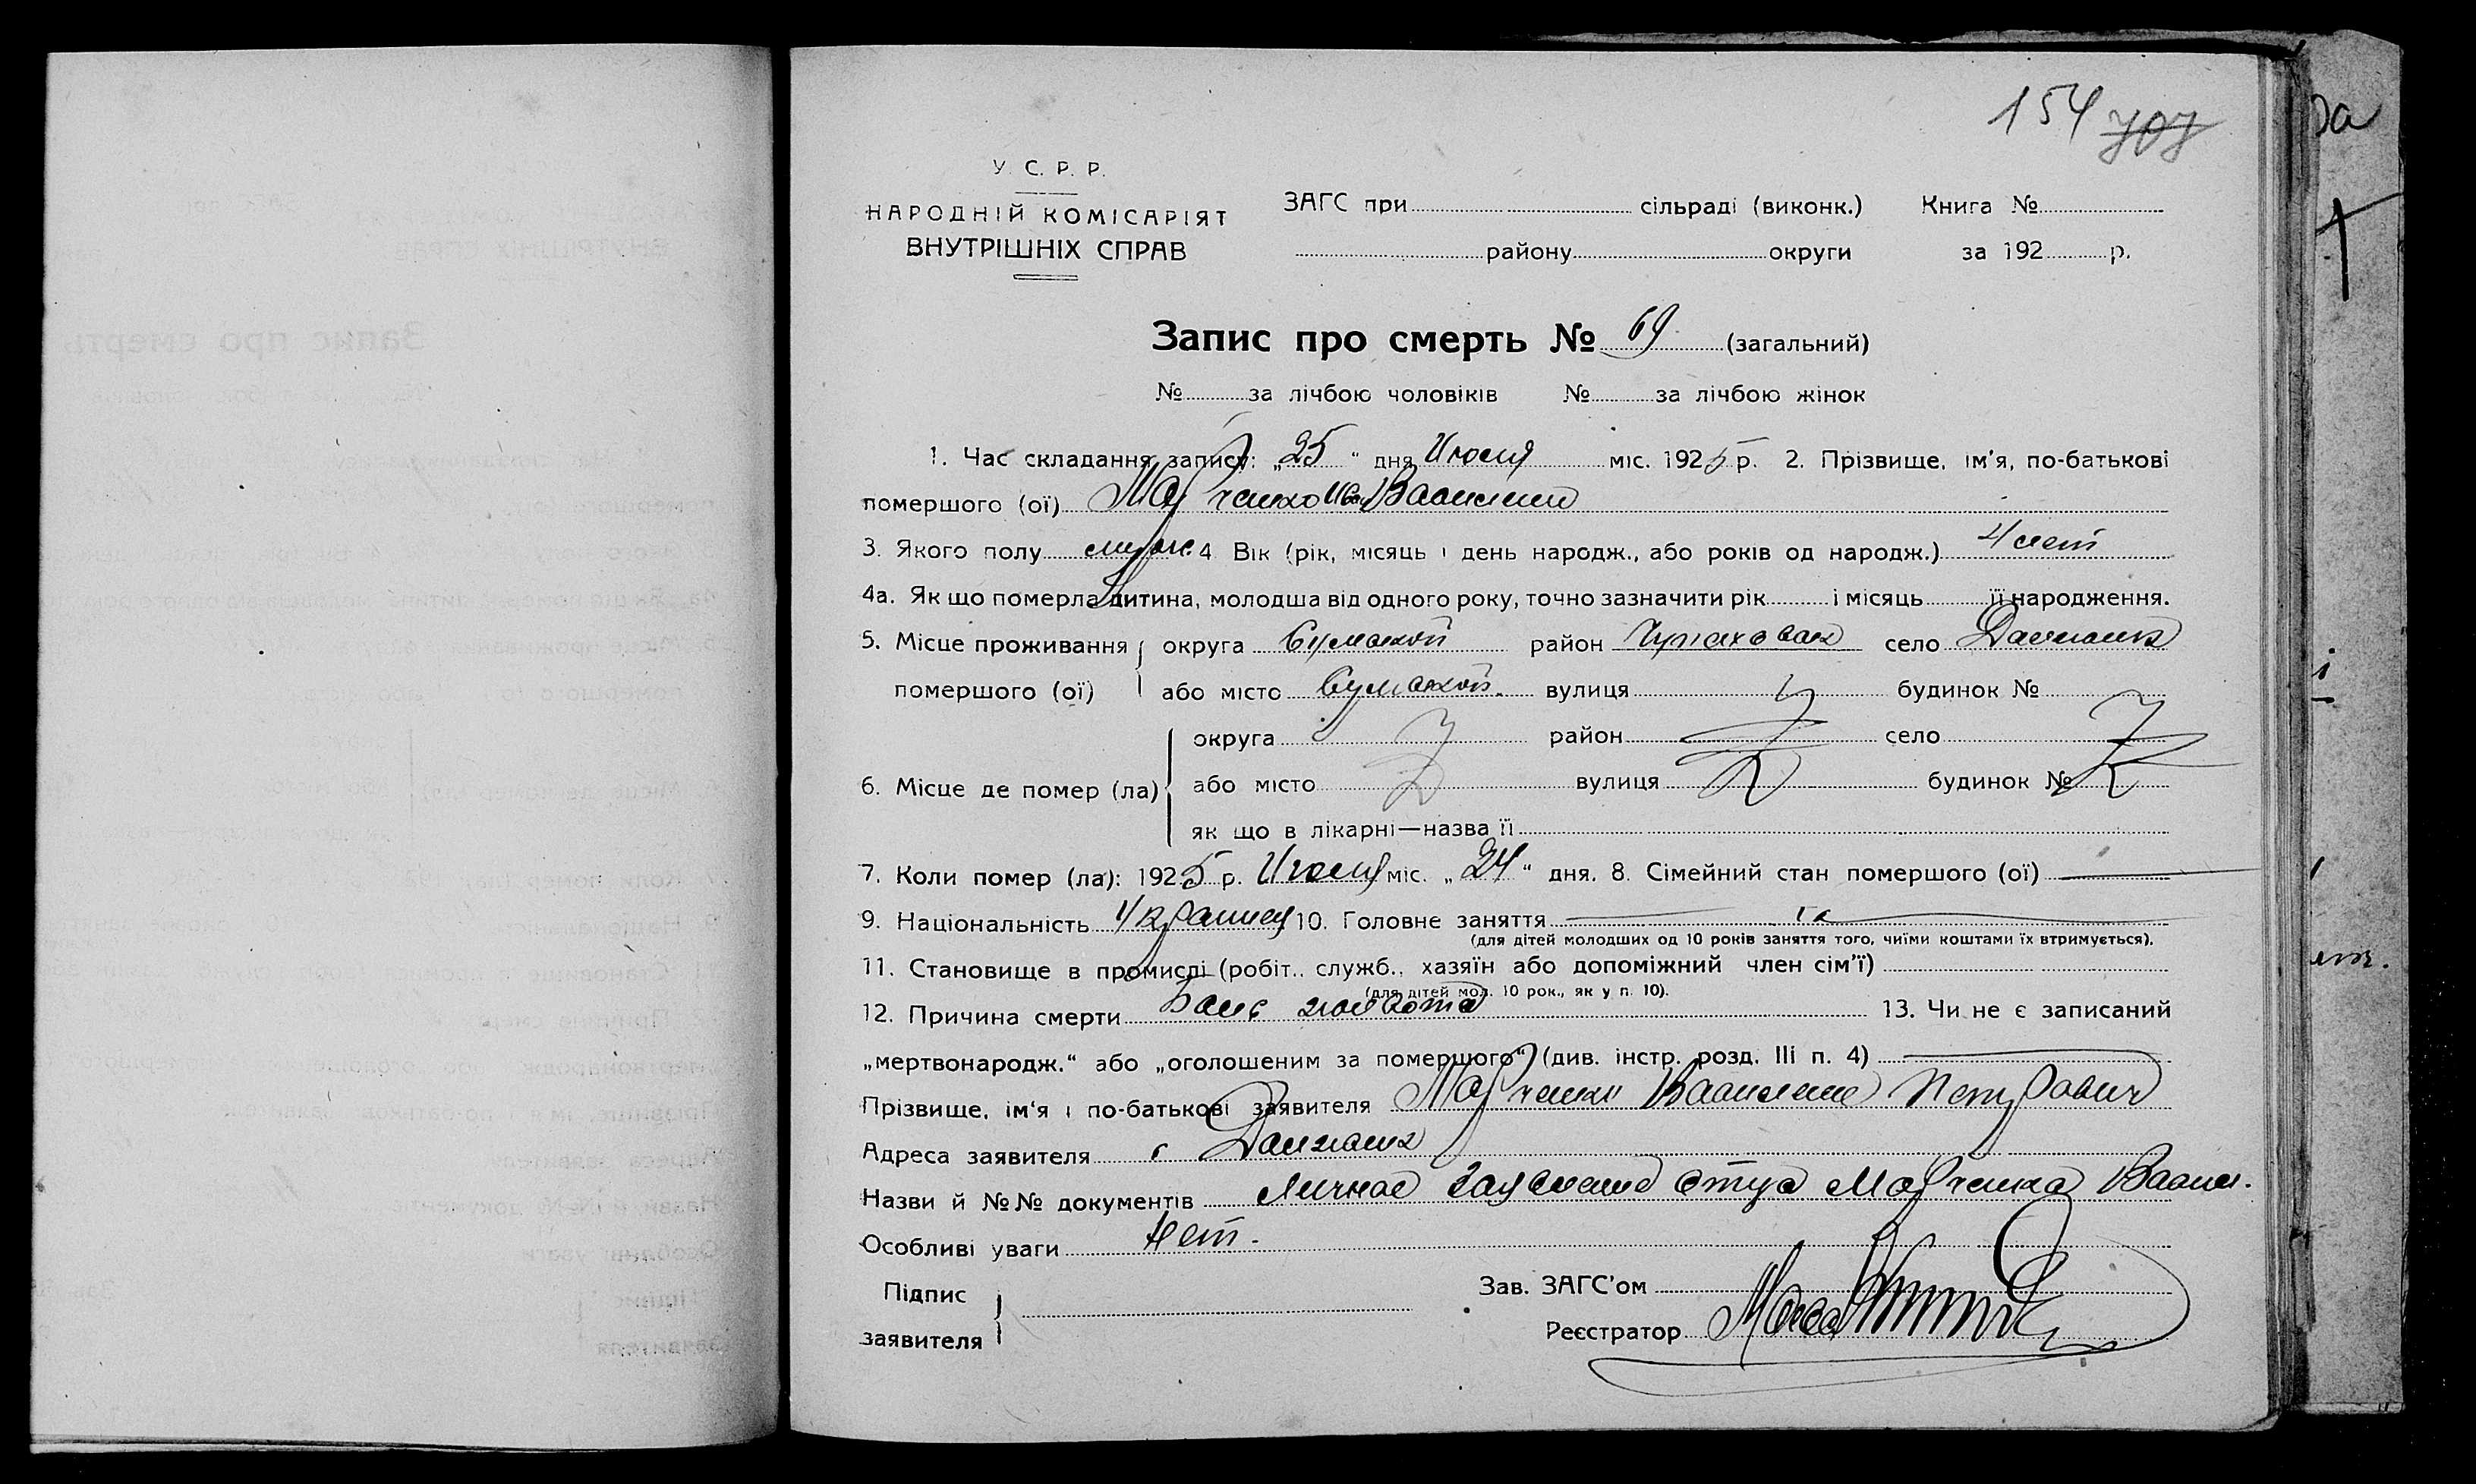 154 707
У. С. Р. Р.
НАРОДНІЙ КОМІСАРІЯТ
ВНУТРІШНІХ СПРАВ
ЗАГС при сільраді (виконк.) Книга №
району округи за 192 р.
Запис про смерть № 69 (загальний)
№ за лічбою чоловіків № за лічбою жінок
1. Час складання запису: „25“ дня Июля міс. 1925 р. 2. Прізвище, ім'я, по-батькові
помершого (ої) Марченко Иван Васильев
3. Якого полу муж. 4. Вік (рік, місяць і день народж., або років од народж.) 4 лет
4а. Як що померла дитина, молодша від одного року, точно зазначити рік і місяць її народження.
5. Місце проживання помершого (ої) округа Сумской район село
або місто Сумской. вулиця будинок №
6. Місце де помер (ла) округа район село
або місто вулиця будинок №
як що в лікарні—назва її
7. Коли помер (ла): 1925 р. Июля міс. „24“ дня. 8. Сімейний стан помершого (ої)
9. Національність Украинец 10. Головне заняття
(для дітей молодших од 10 років заняття того, чиїми коштами їх втримується).
11. Становище в промислі (робіт., служб., хазяїн або допоміжний член сім'ї)
(для дітей мол. 10 рок., як у п. 10).
12. Причина смерти Боль живота 13. Чи не є записаний
„мертвонародж.“ або „оголошеним за помершого“ (див. інстр. розд. III п. 4)
Прізвище, ім'я і по-батькові заявителя Марченко Василий Петрович
Адреса заявителя с
Назви й №№ документів личное заявление отца Марченка Васил.
Особливі уваги Нет.
Підпис
заявителя
Зав. ЗАГС'ом
Реєстратор